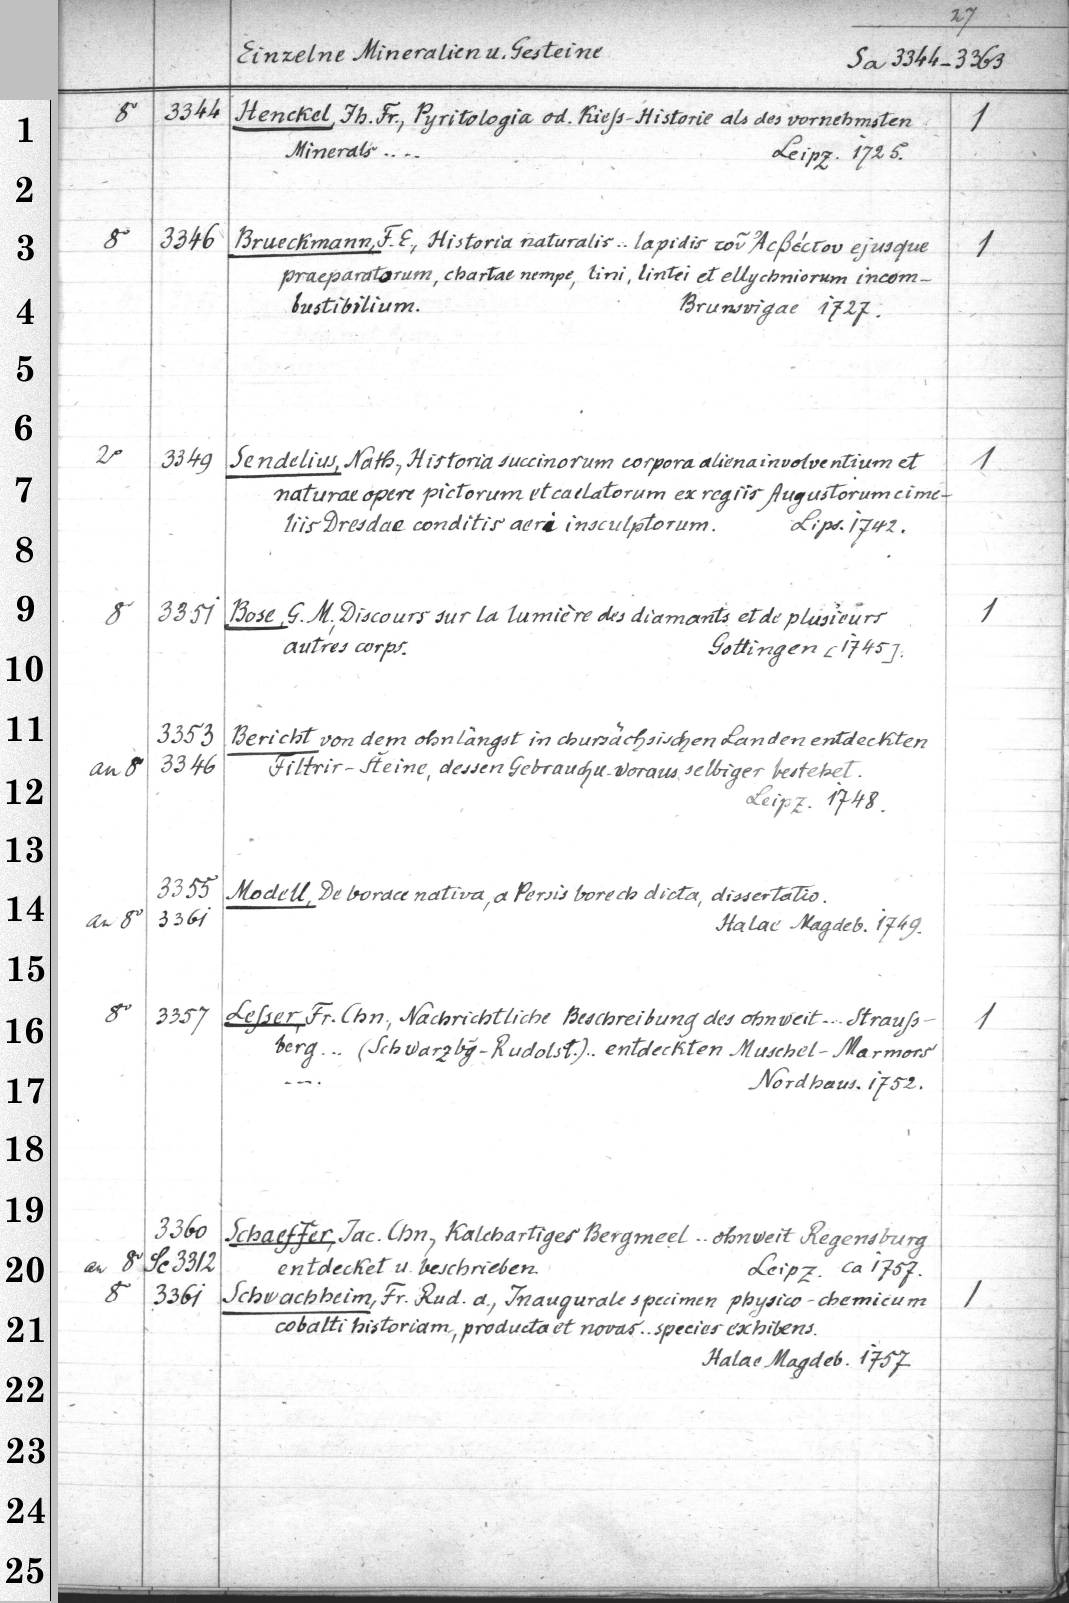 27
Einzelne Mineralien u. Gesteine Sa 3344-3363
8° 3344 Henckel, Jh. Fr., Pyritologia od. Kieſs-Historie als des vornehmsten 1
Minerals .... Leipz. 1725.
8° 3346 Brueckmann, F. E., Historia naturalis .. lapidis τοῦ Ἀςβέςτου ejusque 1
praeparatorum, chartae nempe, lini, lintei et ellychniorum incom-
bustibilium. Brunsvigae 1727.
2° 3349 Sendelius, Nath., Historia succinorum corpora aliena involventium et 1
naturae opere pictorum et caelatorum ex regiis Augustorum cime-
liis Dresdae conditis aeri insculptorum. Lips. 1742.
8° 3351 Bose, G. M., Discours sur la lumière des diamants et de plusieurs 1
autres corps. Gottingen [1745].
3353 Bericht von dem ohnlängst in chursächsischen Landen entdeckten
an 8° 3346 Filtrir-Steine, dessen Gebrauch u. woraus selbiger bestehet.
Leipz. 1748.
3355 Modell, De borace nativa, a Persis borech dicta, dissertatio.
an 8° 3361 Halae Magdeb. 1749.
8° 3357 Leſser, Fr. Chn., Nachrichtliche Beschreibung des ohnweit ... Strauſs- 1
berg ... (Schwarzbg-Rudolst.) .. entdeckten Muschel-Marmors
.... Nordhaus. 1752.
3360 Schaeffer, Jac. Chn., Kalchartiges Bergmeel .. ohnweit Regensburg
an 8° Sc 3312 entdecket u. beschrieben. Leipz. ca 1757.
8° 3361 Schwachheim, Fr. Rud. a, Inaugurale specimen physico-chemicum 1
cobalti historiam, producta et novas .. species exhibens.
Halae Magdeb. 1757
1
2
3
4
5
6
7
8
9
10
11
12
13
14
15
16
17
18
19
20
21
22
23
24
25